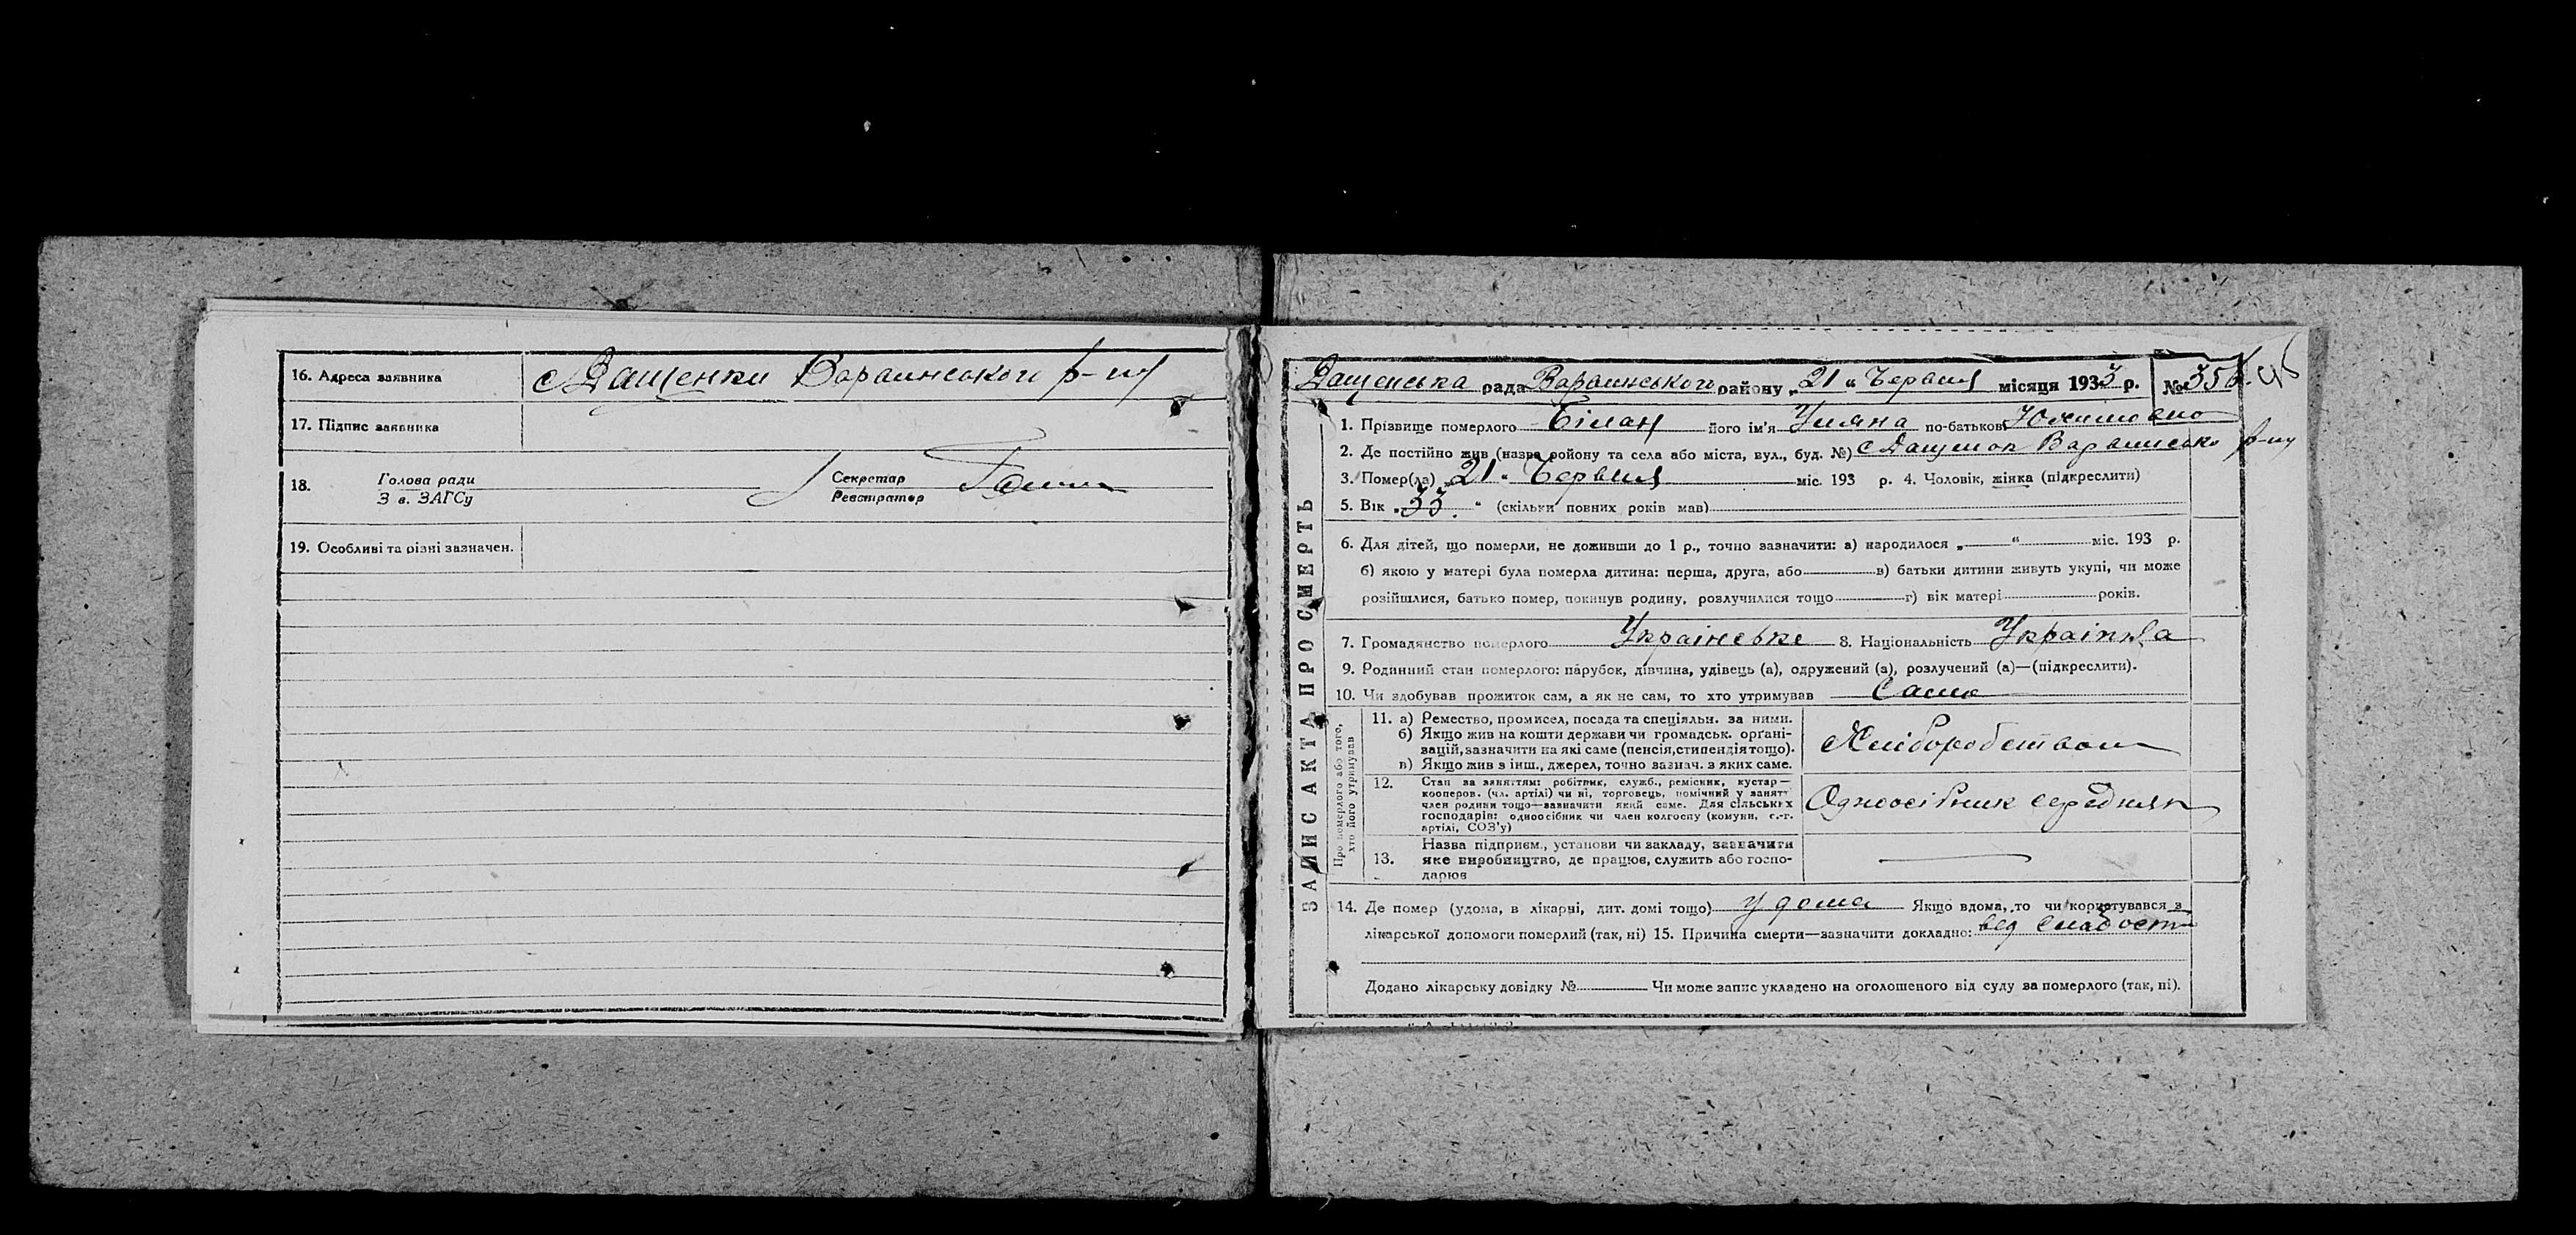 16. Адреса заявника с Дащенки Вараинського р-ну
17. Підпис заявника
18. Голова ради Секретар
З в. ЗАГСу Реєстратор
19. Особливі та різні зазначен.
ЗАПИС АКТА ПРО СМЕРТЬ
Дащенська рада Вараинського району „21“ Червня місяця 1933 р. №
1. Прізвище померлого Білан його ім'я Уляна по-батькові
2. Де постійно жив (назва району та села або міста, вул., буд. №) с Дащенок р-ну
3. Помер(ла) „21“ Червня міс. 193 р. 4. Чоловік, жінка (підкреслити)
5. Вік „33“ (скільки повних років мав)
6. Для дітей, що померли, не доживши до 1 р., точно зазначити: а) народилося „ “ міс. 193 р.
б) якою у матері була померла дитина: перша, друга, або в) батьки дитини живуть укупі, чи може
розійшлися, батько помер, покинув родину, розлучилися тощо г) вік матері років.
7. Громадянство померлого Українське 8. Національність Українка
9. Родинний стан померлого: парубок, дівчина, удівець (а), одружений (а), розлучений (а)—(підкреслити).
10. Чи здобував прожиток сам, а як не сам, то хто утримував Сама
Про померлого або того,
хто його утримував
11. а) Ремество, промисел, посада та спеціяльн. за ними.
б) Якщо жив на кошти держави чи громадськ. орґані-
зацій, зазначити на які саме (пенсія, стипендія тощо).
в) Якщо жив з інш., джерел, точно зазнач. з яких саме.
Хліборобством
12. Стан за заняттям: робітник, служб., ремісник, кустар—
кооперов. (чл. артілі) чи ні, торговець, помічний у занятт
член родини тощо—зазначити який саме. Для сільських
господарів: одноосібник чи член колгоспу (комуни, с.-г.
артілі, СОЗ'у)
Одноосібник середняк
13. Назва підприєм., установи чи закладу, зазначити
яке виробництво, де працює, служить або госпо-
дарює
14. Де помер (удома, в лікарні, дит. домі тощо) у дома Якщо вдома, то чи користувався з
лікарської допомоги померлий (так, ні) 15. Причина смерти—зазначити докладно: від слабости
Додано лікарську довідку № Чи може запис укладено на оголошеного від суду за померлого (так, ні).